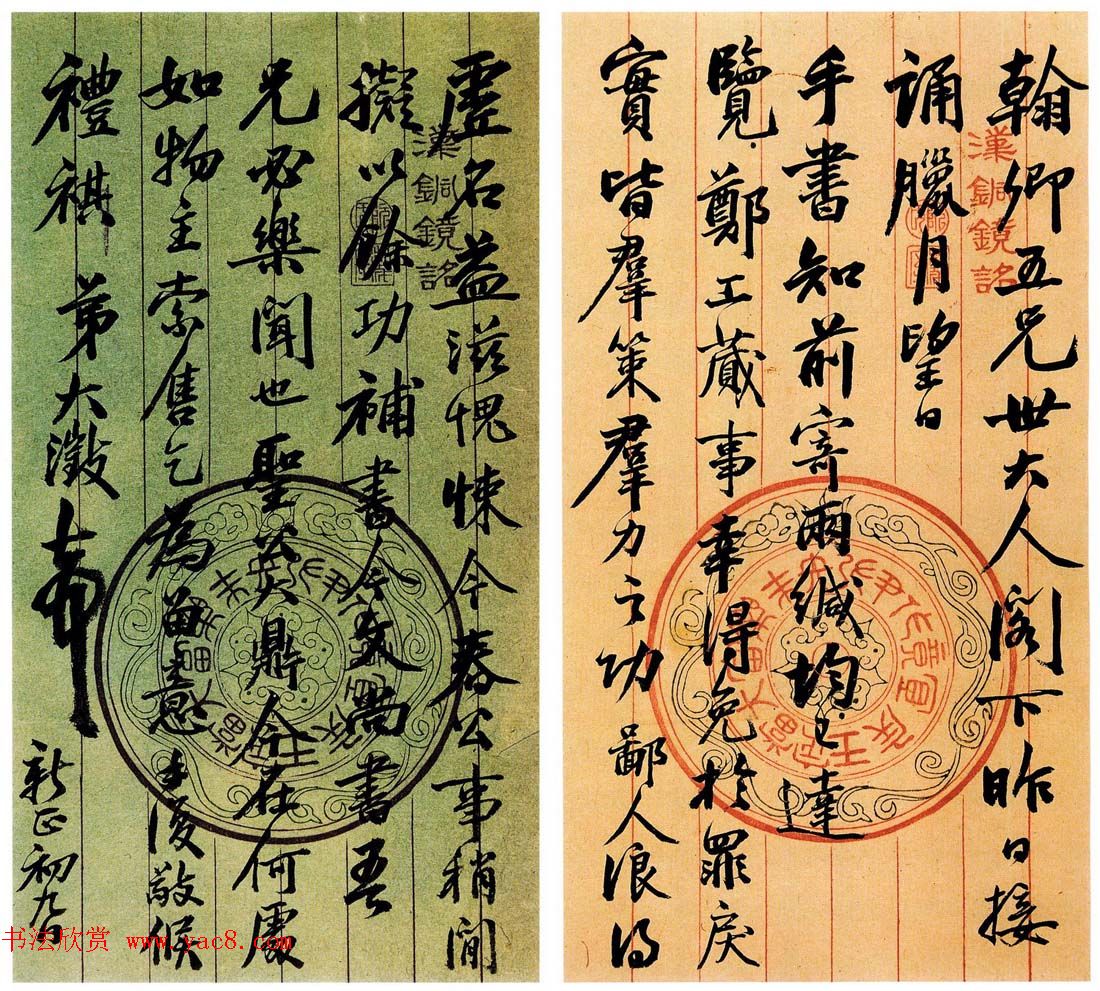 翰卿五兄世大人閣下昨日接
誦臘月望日
手書知前寄兩緘均已達
覽鄭工蕆事幸得免於罪戾
實皆羣策羣力之功鄙人浪得
漢銅鏡銘
虛名益滋愧悚今春公事稍閒
擬以餘功補書今文尚書吾
兄必樂聞也聖公鼎今在何處
如物主索售乞為留意手復敬候
禮祺 弟大澂
新正初九日
漢銅鏡銘
书法欣赏 www.yac8.com